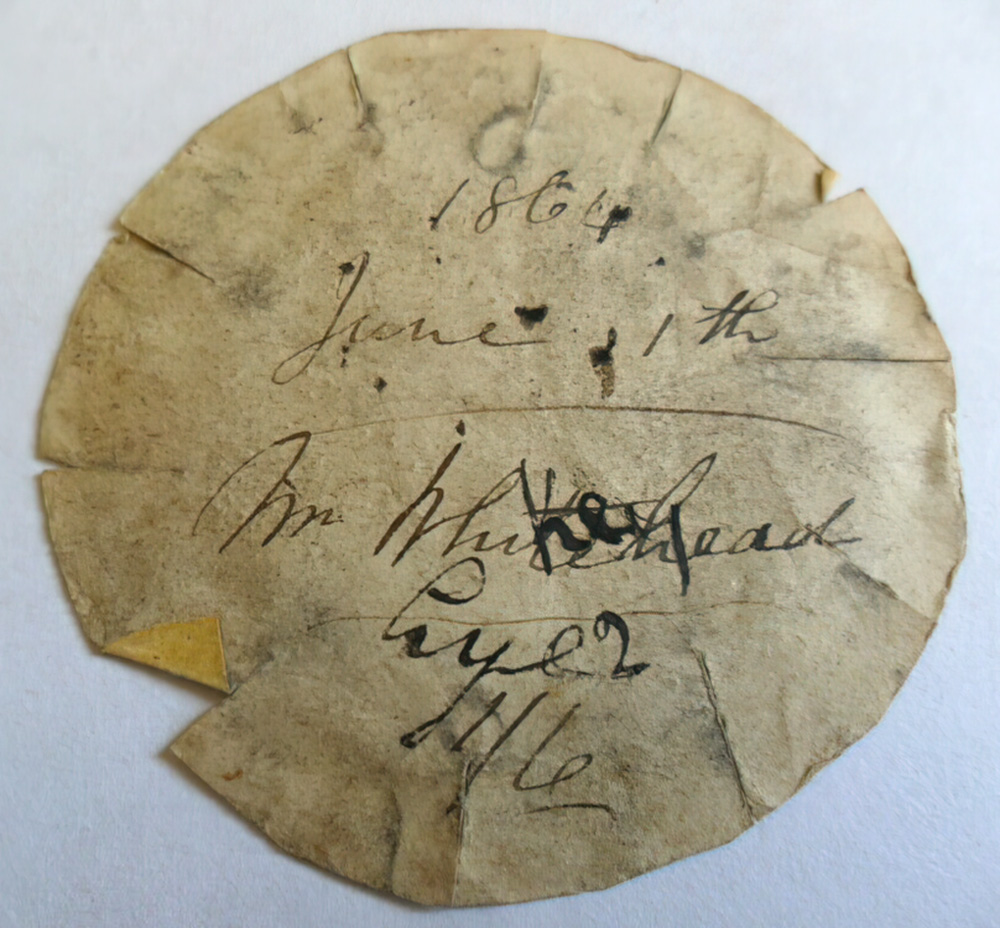 1864
June 1th
Mr Whitehead
1/6